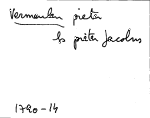 Vermeulen pieter
bs pieter Jacobus
1790-14